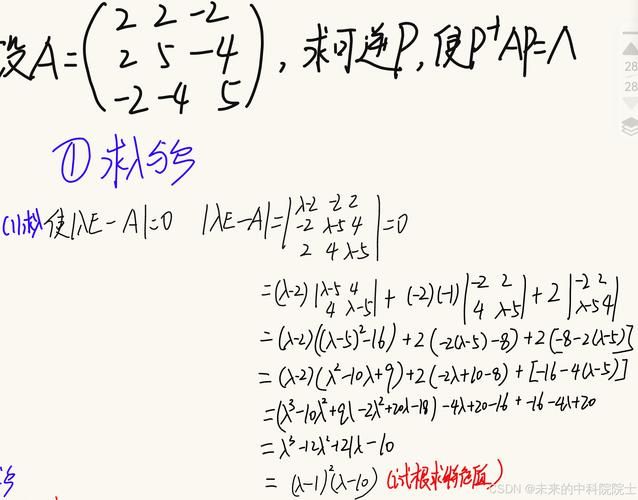 设A=(2 2 -2
2 5 -4
-2 -4 5), 求可逆P, 使P⁻¹AP=Λ
① 求λ与ξ
(1)求λ 使|λE-A|=0 |λE-A|=|λ-2 -2 2
-2 λ-5 4
2 4 λ-5|=0
=(λ-2)|λ-5 4
4 λ-5| + (-2)(-1)|-2 2
4 λ-5| + 2|-2 2
λ-5 4|
=(λ-2)((λ-5)²-16)+2(-2(λ-5)-8)+2[-8-2(λ-5)]
=(λ-2)(λ²-10λ+9)+2(-2λ+10-8)+[-16-4(λ-5)]
=(λ³-10λ²+9λ-2λ²+20λ-18)-4λ+20-16+-16-4λ+20
=λ³-12λ²+21λ-10
=(λ-1)²(λ-10) (试根求特征值)
28
28
CSDN @未来的中科院院士